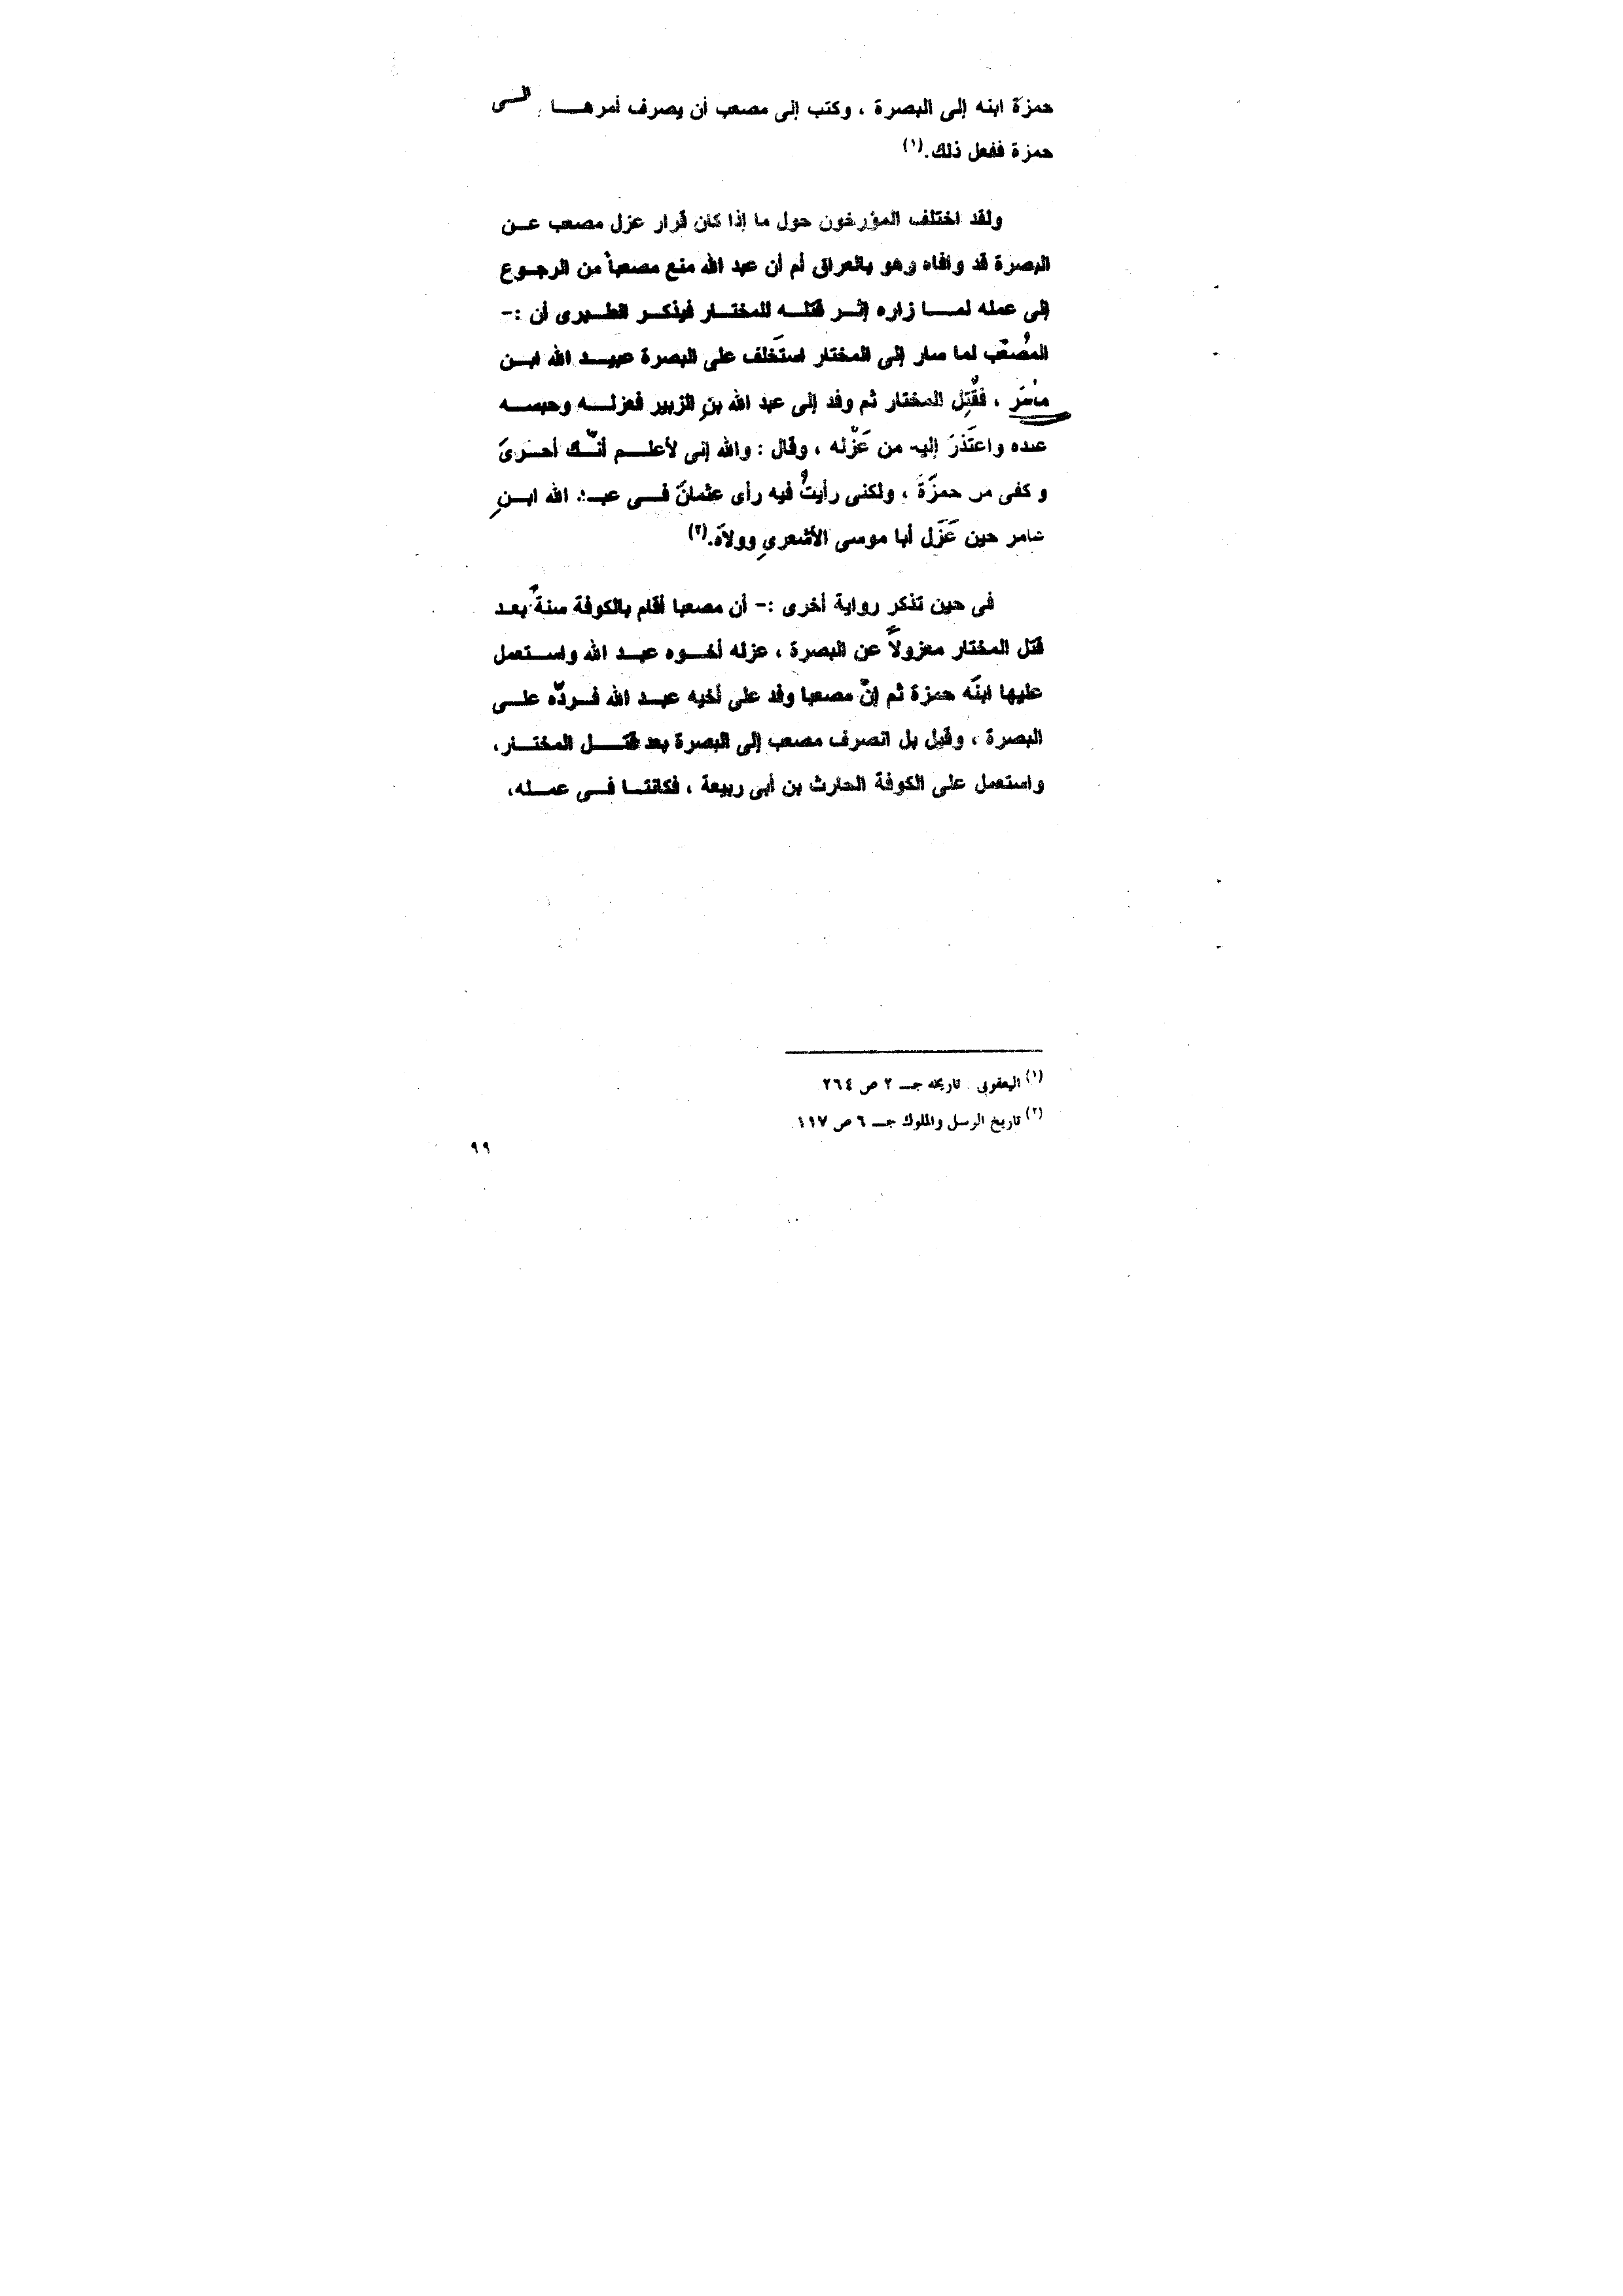 حمزة ابنه إلى البصرة ، وكتب إلى مصعب أن يصرف أمرهــا إلــى
حمزة ففعل ذلك.(١)
ولقد اختلف المؤرخون حول ما إذا كان قرار عزل مصعب عــن
البصرة قد وافاه وهو بالعراق أم أن عبد الله منع مصعباً من الرجــوع
إلى عمله لمــا زاره إثــر قتلــه للمختــار فيذكــر الطــبرى أن :-
المُصعَب لما سار إلى المختار استَخلف على البصرة عبيــد الله ابــن
، فقُتِل المختار ثم وفد إلى عبد الله بنِ الزبير فعزلــه وحبســه
عنده واعتَذرَ إليه من عَزْله ، وقال : والله إنى لأعلــم أنّــك أحــرىَ
وكفى من حمزَةَ ، ولكنى رأيتُ فيه رأى عثمانَ فــى عبــد الله ابــنِ
عامر حين عَزَل أبا موسى الأشعرىِ وولاَه.(٢)
فى حين تذكر رواية أخرى :- أن مصعبا أقام بالكوفة سنةً بعــد
قتل المختار معزولاً عن البصرة ، عزله أخــوه عبــد الله واســتعمل
عليها ابنَه حمزة ثم إنّ مصعبا وفد على أخيه عبــد الله فــردّه علــى
البصرة ، وقيل بل انصرف مصعب إلى البصرة بعد قتــل المختــار،
واستعمل على الكوفة الحارث بن أبى ربيعة ، فكانتــا فــى عمــله،
(١) اليعقوبى . تاريخه جــ ٢ ص ٢٦٤
(٢) تاريخ الرسل والملوك جــ ٦ ص ١١٧
٩٩